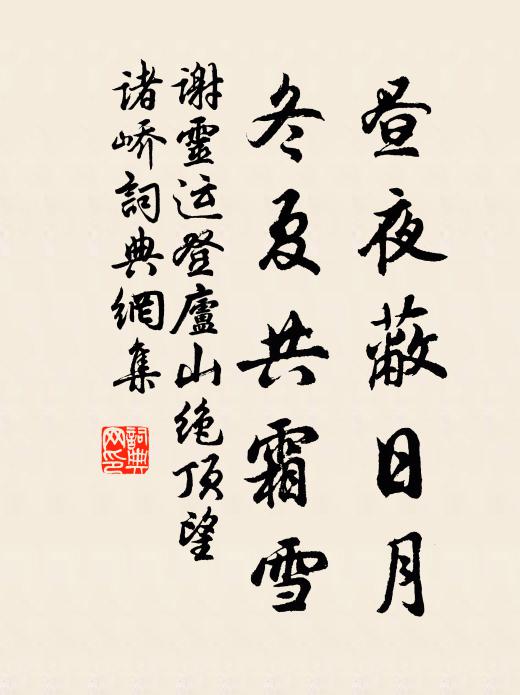 昼夜蔽日月
冬夏共霜雪
谢靈运登廬山绝顶望
诸峤詞典網集
詞典网印